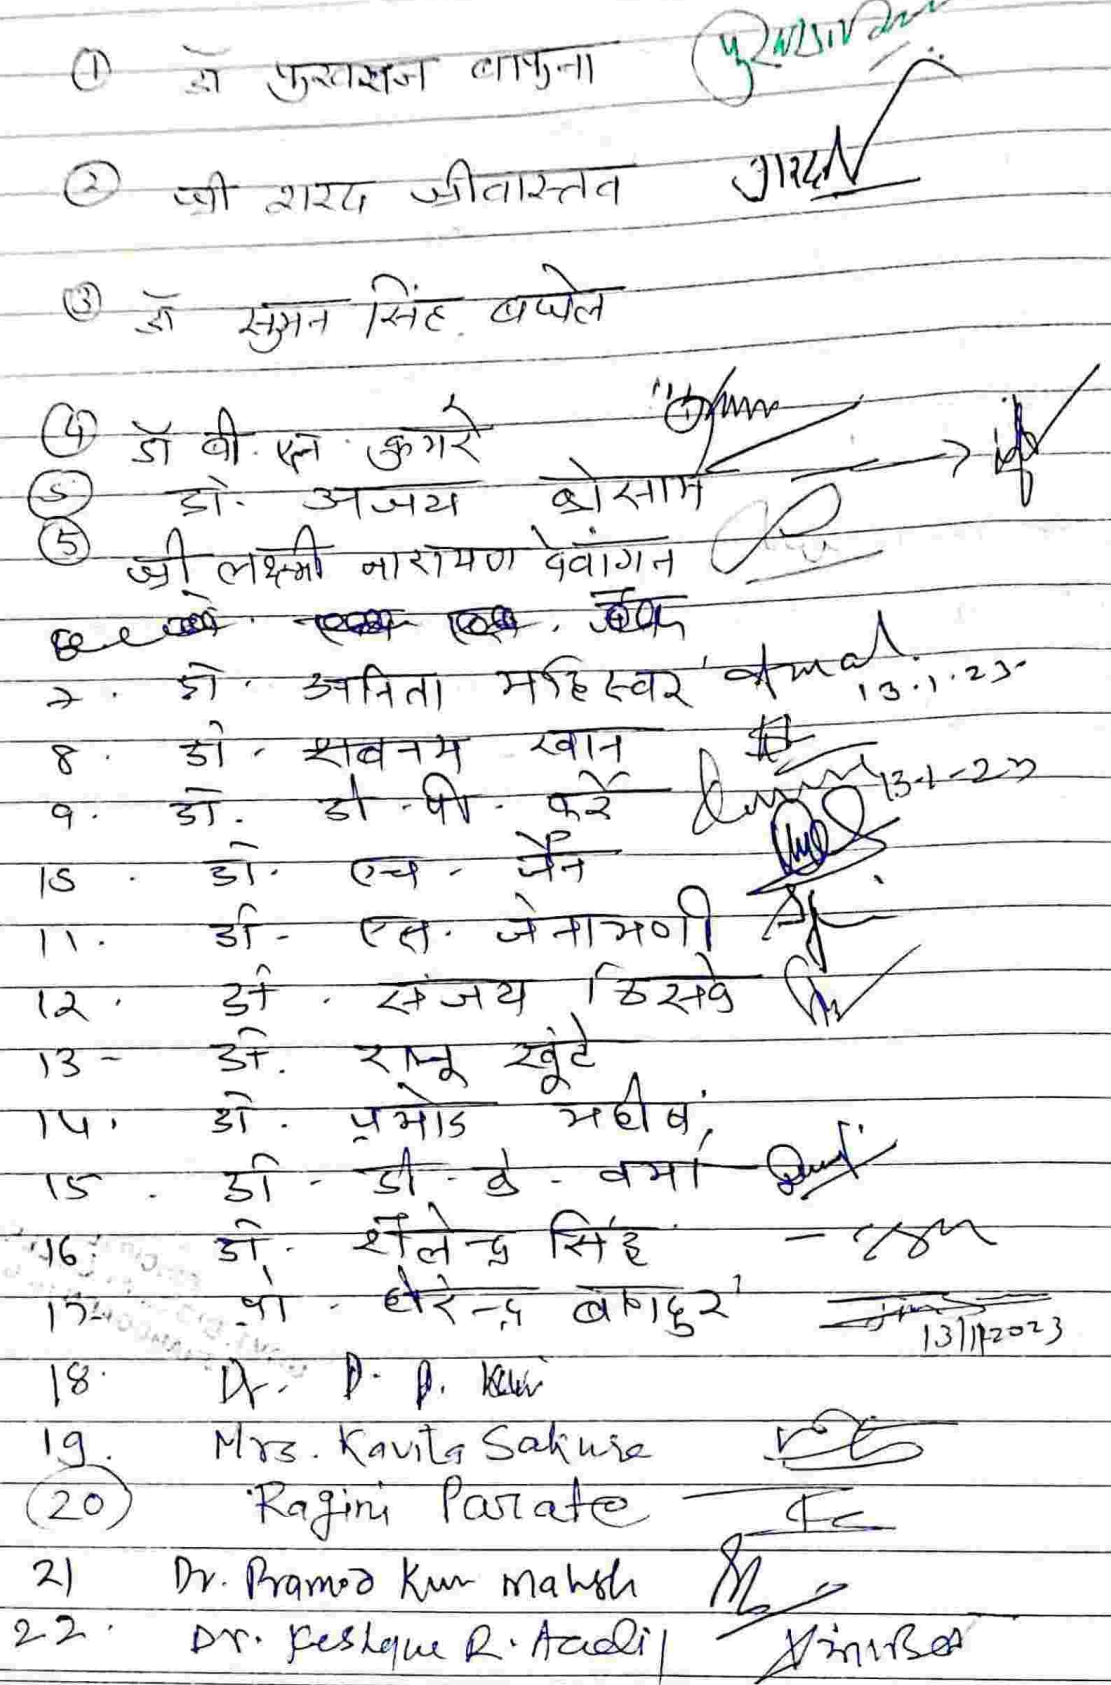 ① डॉ पुखराज बाफना
② श्री शरद श्रीवास्तव शरद
③ डॉ सुमन सिंह. बघेल
④ डॉ बी. एल. कुमरे
⑤ डॉ. अजय कोसाम
⑤ श्री लक्ष्मी नारायण देवांगन
7. डॉ. अनिता महिस्वर 13.1.23
8. डॉ. शबनम खान
9. डॉ. डी. पी. कुर्रे 13-1-23
10. डॉ. एच. जैन
11. डॉ. एस. जेनामणी
12. डॉ. संजय ठिसके
13- डॉ. राजू खूंटे
14. डॉ. प्रमोद महीष
15. डॉ. डी. के. वर्मा
16. डॉ. शैलेन्द्र सिंह
17- प्रो. धीरेन्द्र बहादुर 13/1/2023
18. Dr. D. P. Kurre
19. Mrs. Kavita Sakure
⑳ Ragini Parate
21 Dr. Pramod Kum Mahish
22. Dr. R.